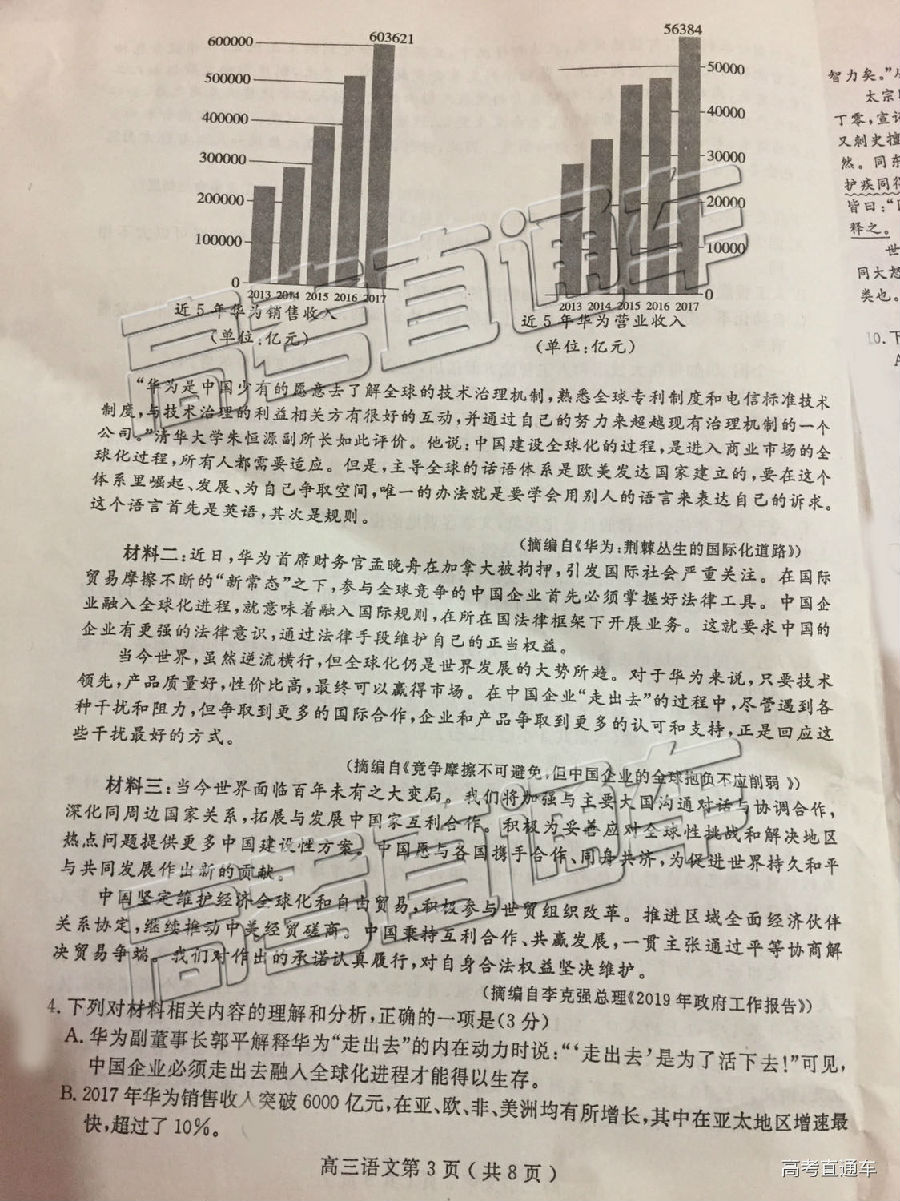 600000
603621
500000
400000
300000
200000
100000
0
2013 2014 2015 2016 2017
近5年华为销售收入
(单位:亿元)
56384
50000
40000
30000
20000
10000
0
2013 2014 2015 2016 2017
近5年华为营业收入
(单位:亿元)
“华为是中国少有的愿意去了解全球的技术治理机制,熟悉全球专利制度和电信标准技术
制度,与技术治理的利益相关方有很好的互动,并通过自己的努力来超越现有治理机制的一个
公司。”清华大学朱恒源副所长如此评价。他说:中国建设全球化的过程,是进入商业市场的全
球化过程,所有人都需要适应。但是,主导全球的话语体系是欧美发达国家建立的,要在这个
体系里崛起、发展、为自己争取空间,唯一的办法就是要学会用别人的语言来表达自己的诉求。
这个语言首先是英语,其次是规则。
(摘编自《华为:荆棘丛生的国际化道路》)
材料二:近日,华为首席财务官孟晚舟在加拿大被拘押,引发国际社会严重关注。在国际
贸易摩擦不断的“新常态”之下,参与全球竞争的中国企业首先必须掌握好法律工具。中国企
业融入全球化进程,就意味着融入国际规则,在所在国法律框架下开展业务。这就要求中国的
企业有更强的法律意识,通过法律手段维护自己的正当权益。
当今世界,虽然逆流横行,但全球化仍是世界发展的大势所趋。对于华为来说,只要技术
领先,产品质量好,性价比高,最终可以赢得市场。在中国企业“走出去”的过程中,尽管遇到各
种干扰和阻力,但争取到更多的国际合作,企业和产品争取到更多的认可和支持,正是回应这
些干扰最好的方式。
(摘编自《竞争摩擦不可避免,但中国企业的全球抱负不应削弱》)
材料三:当今世界面临百年未有之大变局。我们将加强与主要大国沟通对话与协调合作,
深化同周边国家关系,拓展与发展中国家互利合作。积极为妥善应对全球性挑战和解决地区
热点问题提供更多中国建设性方案。中国愿与各国携手合作、同舟共济,为促进世界持久和平
与共同发展作出新的贡献。
中国坚定维护经济全球化和自由贸易,积极参与世贸组织改革。推进区域全面经济伙伴
关系协定,继续推动中美经贸磋商。中国秉持互利合作、共赢发展,一贯主张通过平等协商解
决贸易争端。我们对作出的承诺认真履行,对自身合法权益坚决维护。
(摘编自李克强总理《2019年政府工作报告》)
4.下列对材料相关内容的理解和分析,正确的一项是(3分)
A.华为副董事长郭平解释华为“走出去”的内在动力时说:“‘走出去’是为了活下去!”可见,
中国企业必须走出去融入全球化进程才能得以生存。
B.2017年华为销售收入突破6000亿元,在亚、欧、非、美洲均有所增长,其中在亚太地区增速最
快,超过了10%。
高三语文第3页(共8页)
智力矣。”
太宗
丁零,宣
又刺史擅
然。同东
护疾同得
皆曰:“
释之。
世
同大怒
类也。
10.下
A
高考直通车
高考直通车
高考直通车